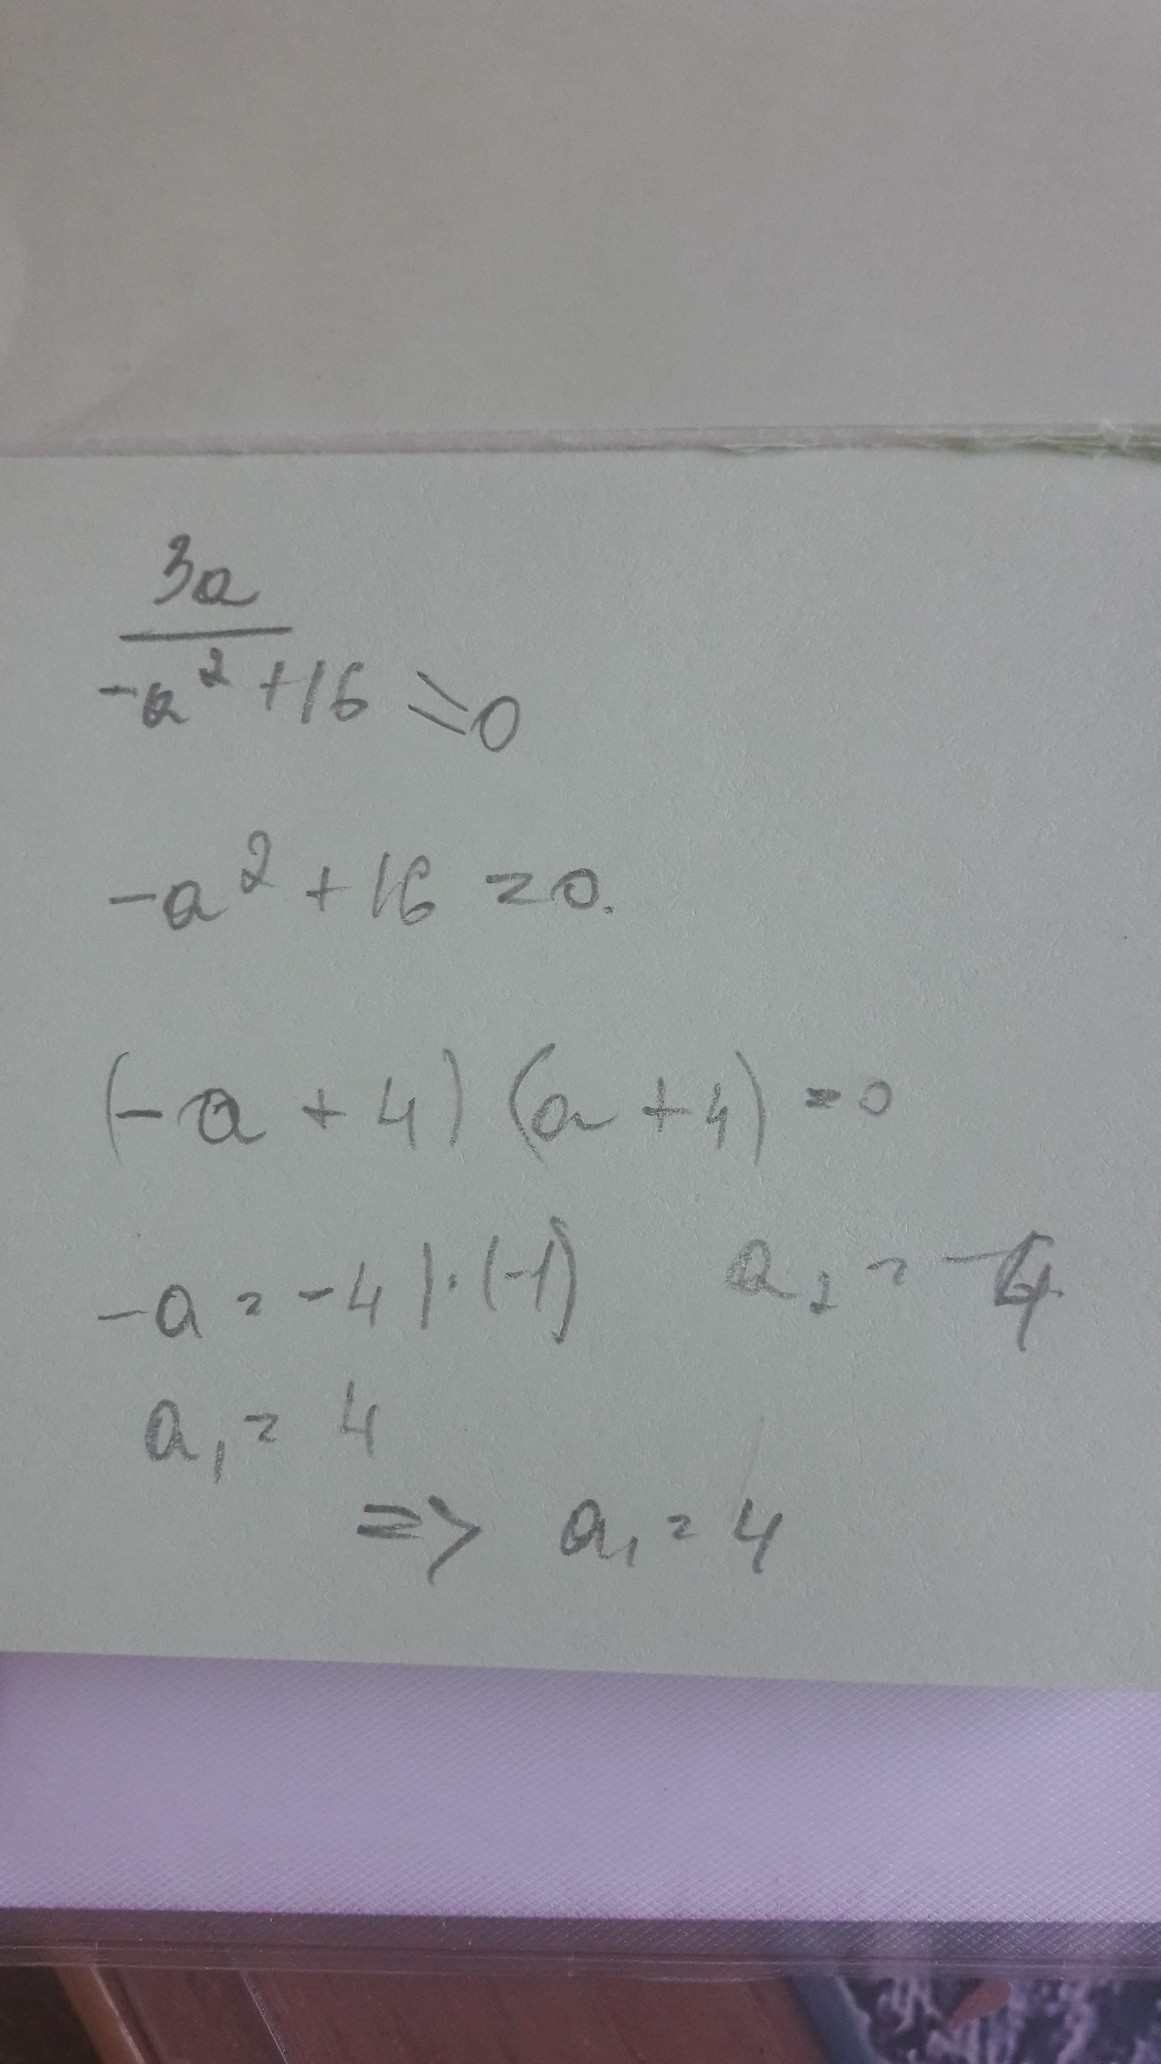 3a
-a² + 16 ⩾ 0
-a² + 16 = 0.
(-a + 4) (a + 4) = 0
-a = -4 | · (-1) a₂ = -4
a₁ = 4
=> a₁ = 4